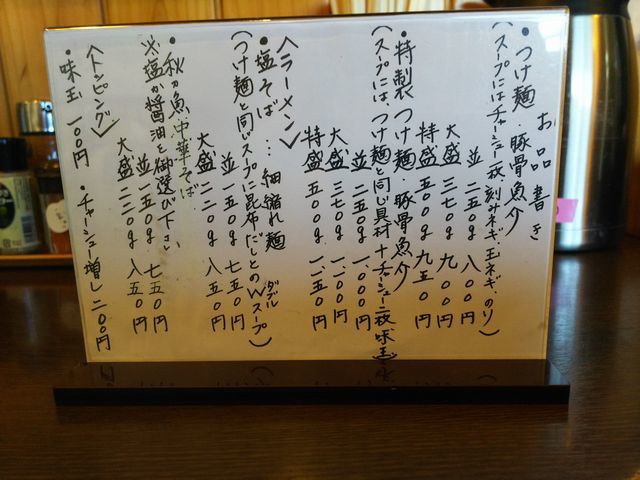 お品書き
・つけ麺・豚骨魚介
(スープにはチャーシュー一枚、刻みネギ、玉ネギ、のり)
並 二五〇g 八〇〇円
大盛 三七〇g 九〇〇円
特盛 五〇〇g 九五〇円
・特製つけ麺・豚骨魚介
(スープには、つけ麺と同じ具材+チャーシュー二枚、味玉
並 二五〇g 一、〇〇〇円
大盛 三七〇g 一、一〇〇円
特盛 五〇〇g 一、一五〇円
〈ラーメン〉
・塩そば…細縮れ麺
(つけ麺と同じスープに昆布だしとのWスープ)
ダブル
並 一五〇g 七五〇円
大盛 二二〇g 八五〇円
・秋刀魚中華そば
※塩か醤油と御選び下さい
並 一五〇g 七五〇円
大盛 二二〇g 八五〇円
〈トッピング〉
・味玉 一〇〇円 ・チャーシュー増し 二〇〇円